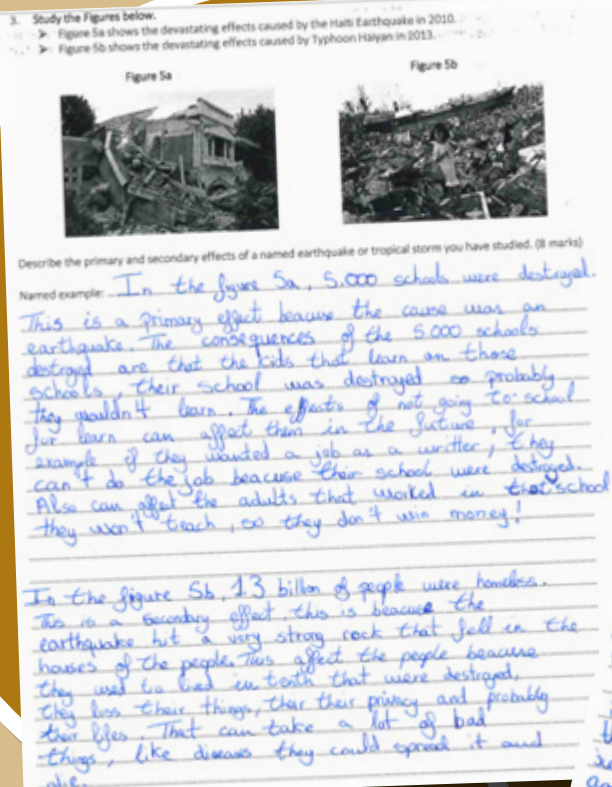 3. Study the Figures below.
➤ Figure 5a shows the devastating effects caused by the Haiti Earthquake in 2010.
➤ Figure 5b shows the devastating effects caused by Typhoon Haiyan in 2013.
Figure 5a
Figure 5b
Describe the primary and secondary effects of a named earthquake or tropical storm you have studied. (8 marks)
Named example: In the figure 5a, 5.000 schools were destroyed.
This is a primary effect beacuse the cause was an
earthquake. The consequences of the 5.000 schools
destroyed are that the kids that learn on those
schools, their school was destroyed so probably
they wouldn't learn. The effects of not going to school
for learn can affect them in the future, for
example, if they wanted a job as a writter, they
can't do the job beacuse their school were destroyed.
Also can affect the adults that worked in that school
they won't teach, so they don't win money!
In the figure 5b, 1.3 billion of people were homeless.
This is a secondary effect, this is beacuse the
earthquake hit a very strong rock that fell in the
houses of the people. This affect the people beacuse
they used to lied in tenth that were destroyed,
they loss their things, their their privacy and probably
their lifes. That can take a lot of bad
things, like diseases they could spread it and
die.